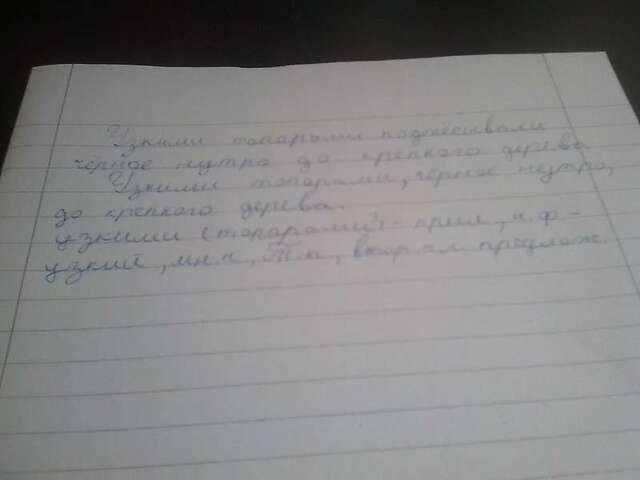 Узкими топорами подтёсывали
чёрное нутро до крепкого дерева
Узкими топорами, чёрное нутро,
до крепкого дерева.
узкими (топорами) - прил, н.ф -
узкий, мн.ч, Т.п, предлож.